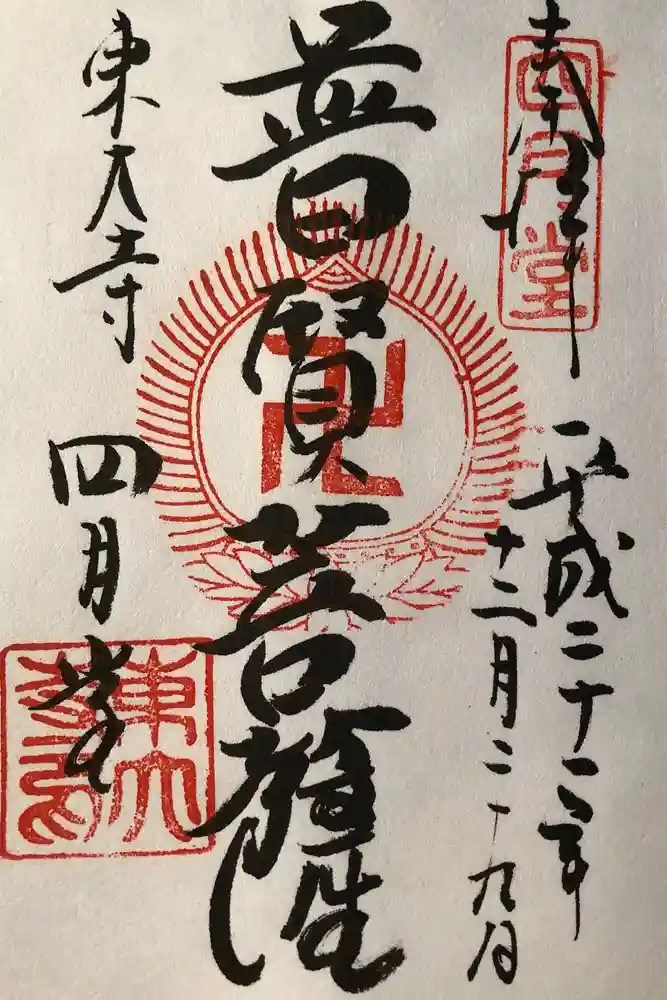 奉拝
四月堂
平成二十二年
十二月二十九日
普賢菩薩
卍
東大寺
四月堂
東大
寺印